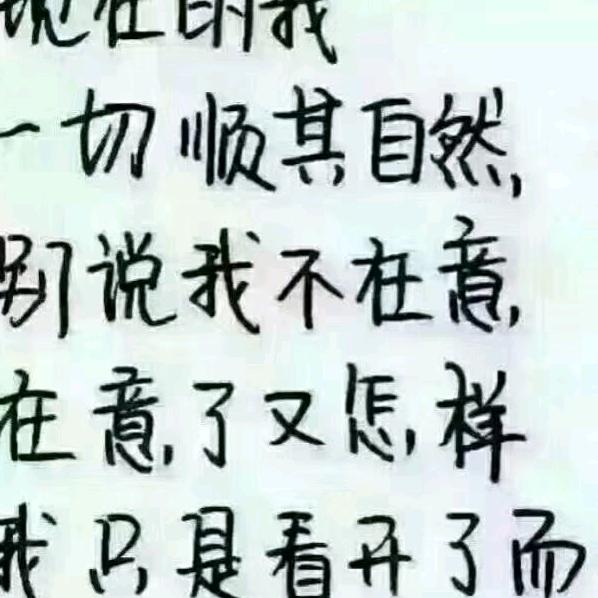 现在的我
一切顺其自然,
别说我不在意,
在意了又怎样
我只是看开了而